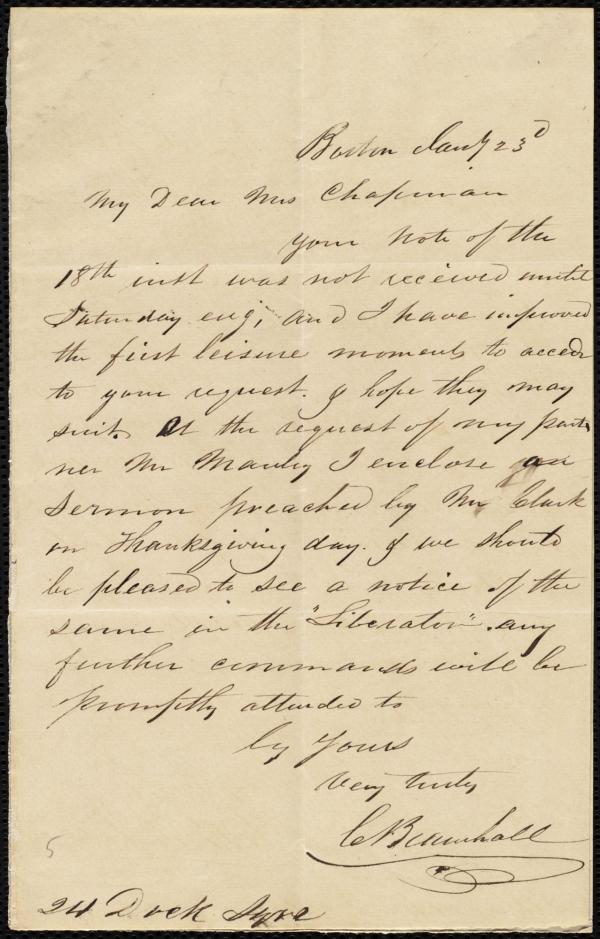 Boston Jany 23d
My Dear Mrs Chapman
your note of the
18th inst was not received until
Saturday evg, and I have improved
the first leisure moments to accede
to your request. & hope they may
suit. At the request of my part
ner Mr Manley I enclose a
Sermon preached by Mr Clark
on Thanksgiving day. & we should
be pleased to see a notice of the
same in the "Liberator". any
further commands will be
promptly attended to
by Yours
Very truly
C Bramhall
5
24 Dock Sqre